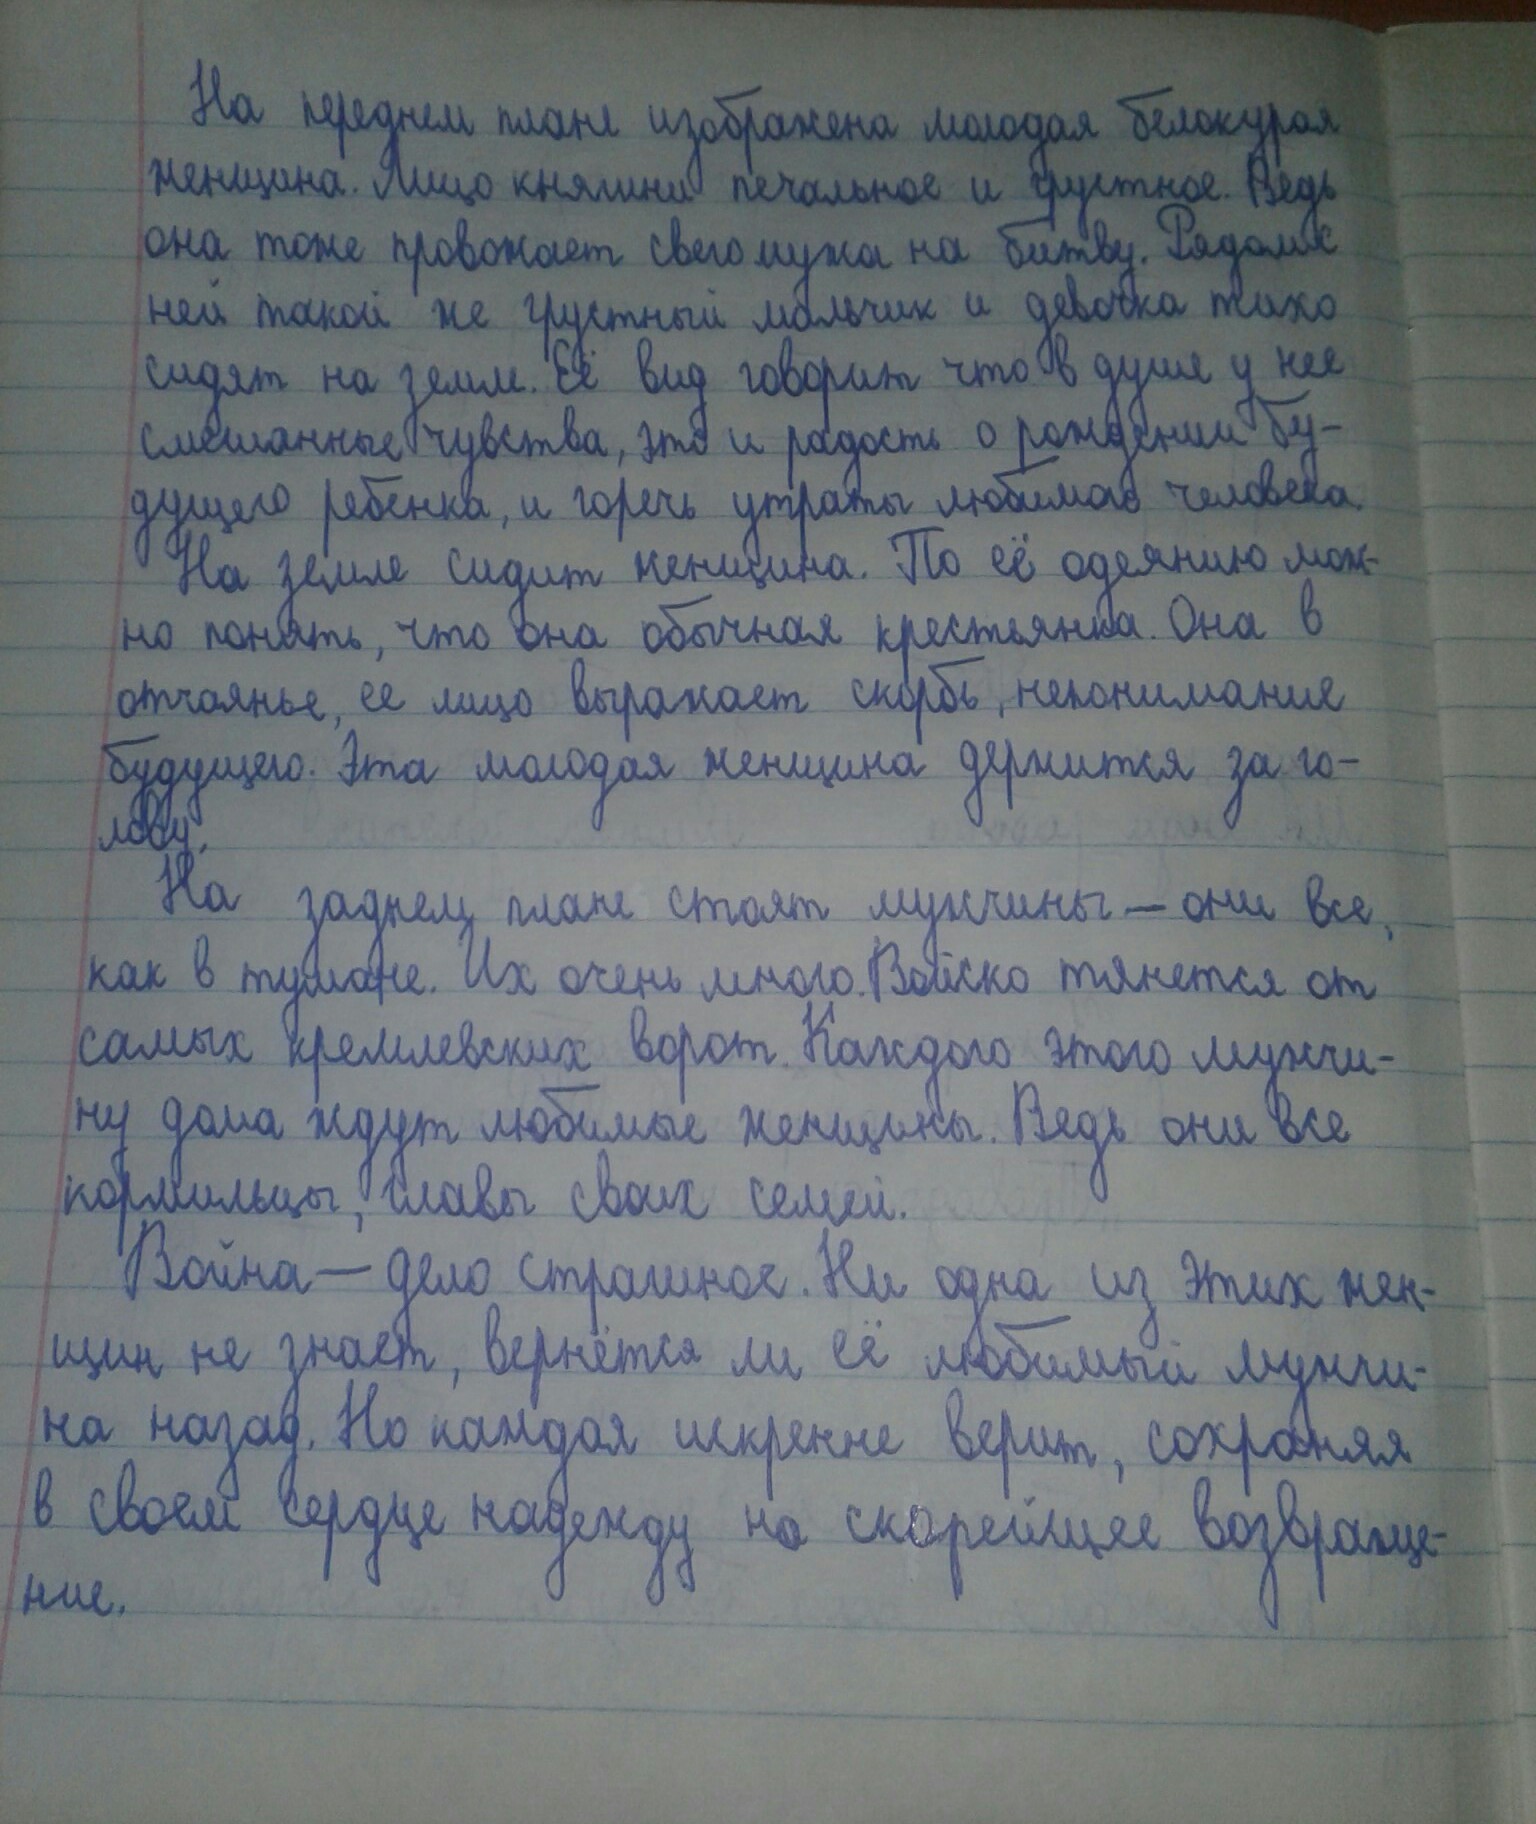 На переднем плане изображена молодая белокурая
женщина. Лицо княгини печальное и грустное. Ведь
она тоже провожает свего мужа на битву. Рядом к
ней такой же грустный мальчик и девочка тихо
сидят на земле. Её вид говорит что в душе у нее
смешанные чувства, это и радость о рождении бу-
дущего ребенка, и горечь утраты любимого человека.
На земле сидит женщина. По её одеянию мож-
но понять, что она обычная крестьянка. Она в
отчаянье, ее лицо выражает скорбь, непонимание
будущего. Эта молодая женщина держится за го-
лову.
На заднем плане стоят мужчины — они все,
как в тумане. Их очень много. Войско тянется от
самых кремлевских ворот. Каждого этого мужчи-
ну дома ждут любимые женщины. Ведь они все
кормильцы, главы своих семей.
Война — дело страшное. Ни одна из этих жен-
щин не знает, вернётся ли её любимый мужчи-
на назад. Но каждая искренне верит, сохраняя
в своем сердце надежду на скорейшее возвраще-
ние.